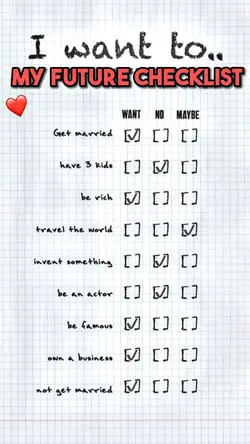 I want to..
MY FUTURE CHECKLIST
WANT NO MAYBE
Get married
have 3 kids
be rich
travel the world
invent something
be an actor
be famous
own a business
not get married